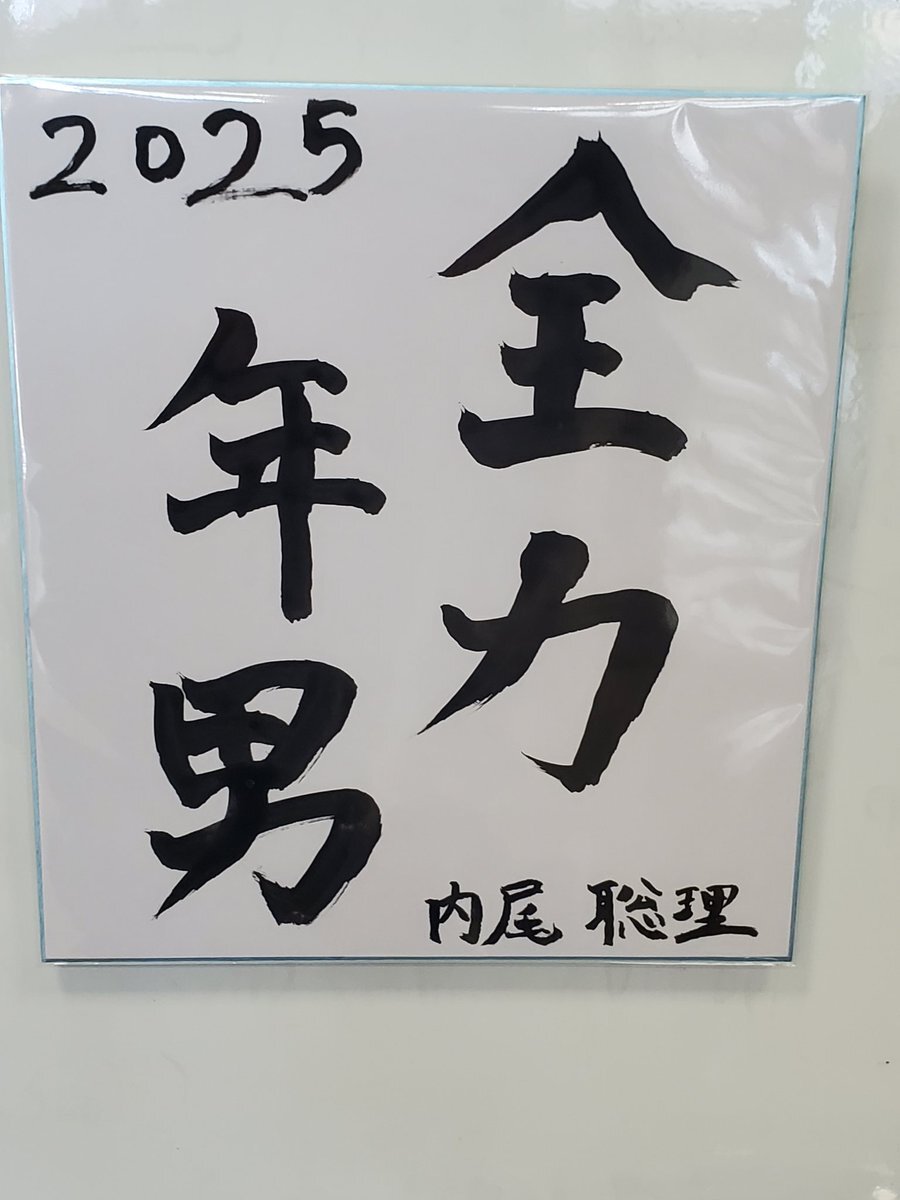 2025
全力
年男
内尾 聡理